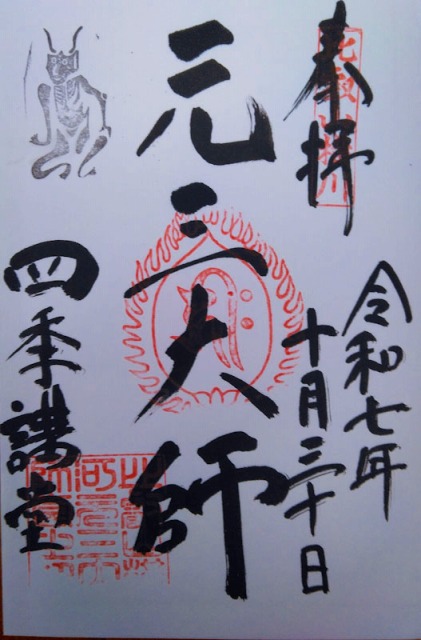 奉拝
令和七年
十月三十日
元三大師
四季講堂